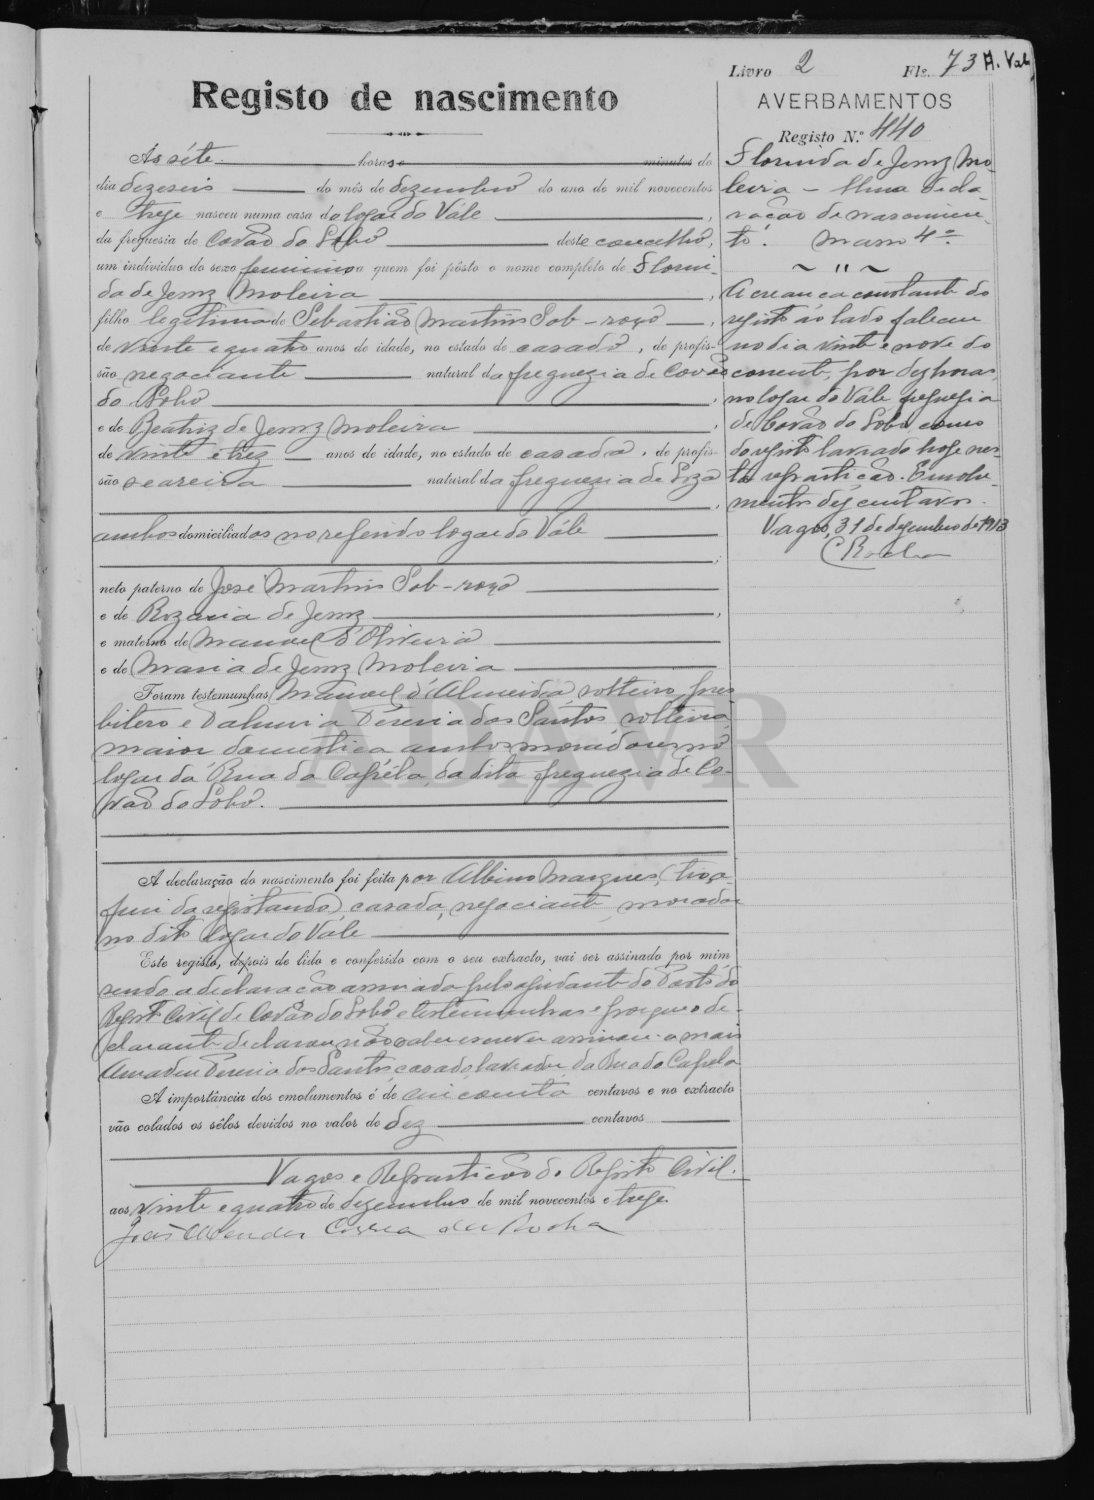 Livro 2 Fls. 73 A. Val
Registo de nascimento
AVERBAMENTOS
Registo N.º 440
Ás séte horas e minutos do
dia dezeseis do mês de dezembro do ano de mil novecentos
e treze nasceu numa casa do logar do Vále,
da freguesia de Covão do Lobo deste concelho,
um individuo do sexo feminino a quem foi pôsto o nome completo de Florin-
da de Jesuz Moleira,
filho legitima de Sebastião Martins Sob-roço,
de vinte e quatro anos de idade, no estado de casado, de profis-
são negociante natural da freguezia de Covão
do Lobo,
e de Beatriz de Jesuz Moleira,
de vinte e trez anos de idade, no estado de casada, de profis-
são seareira natural da freguezia de Soza,
ambos domiciliados no referido logar do Vále;
neto paterno de José Martins Sob-roço
e de Rozaria de Jesuz,
e materno de Manoel d'Oliveira
e de Maria de Jesuz Moleira
Foram testemunhas Manoel d'Almeida, solteiro, pres-
bitero e Pereira dos Santos, solteira,
maior domestica ambos moradores no
logar da Rua da Capéla, da dita freguezia de Co-
vão do Lobo.
A declaração do nascimento foi feita por Albino Marques,
da registanda), casado, negociante, morador
no dito logar do Vále
Este registo, depois de lido e conferido com o seu extracto, vai ser assinado por mim
sendo a declaração assinada pelo ajudante do Posto do
Registo Civil de Covão do Lobo e testemunhas e porque o de-
clarante declarou não saber escrever assina a
Amadeu Pereira dos Santos, casado, lavrador, da Rua da Capela
A importância dos emolumentos é de cincoenta centavos e no extracto
vão colados os sêlos devidos no valor de dez centavos
Vagos e Repartição do Registo Civil.
aos vinte e quatro de dezembro de mil novecentos e treze.
João Mendes Correa da Rocha
Florinda de Jesuz Mo-
leira - Uma decla-
ração de nascimen-
to. Maço 4º.
~ " ~
A creança constante do
registo ao lado faleceu
no dia vinte e nove do
corrente, por dez horas,
no logar do Vale freguesia
de Covão do Lobo como
do registo lavrado hoje nes-
ta repartição. Emolu-
mentos dez centavos.
Vagos, 31 de dezembro de 1913
C Rocha
ADAVR